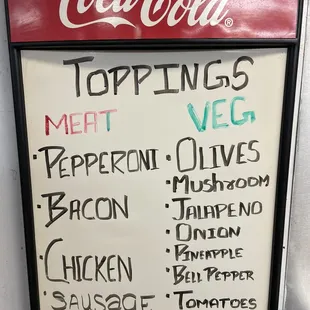 Coca-Cola®
TOPPINGS
MEAT
VEG
• PEPPERONI
• BACON
• CHICKEN
• SAUSAGE
• OLIVES
• Mushroom
• JALAPENO
• ONION
• PINEAPPLE
• BELL PEPPER
• TOMATOES